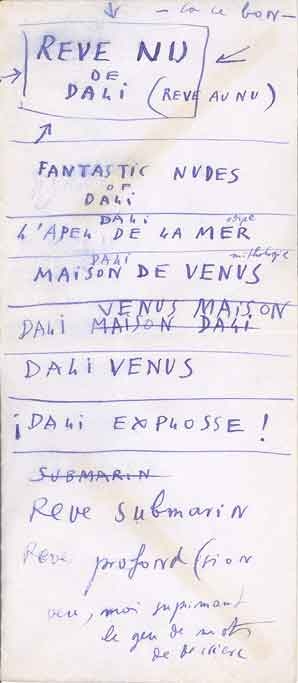 ça ce bon
REVE NU
DE
DALI (REVE AU NU)
FANTASTIC NUDES
OF
DALI
DALI
L'APEL DE LA MER
DALI mithologie
MAISON DE VENUS
VENUS MAISON
DALI MAISON DALI
DALI VENUS
¡DALI EXPLOSSE!
SUBMARIN
Reve submarin
Reve profond (sion
moi suprimant
le geu de mots
de derriere